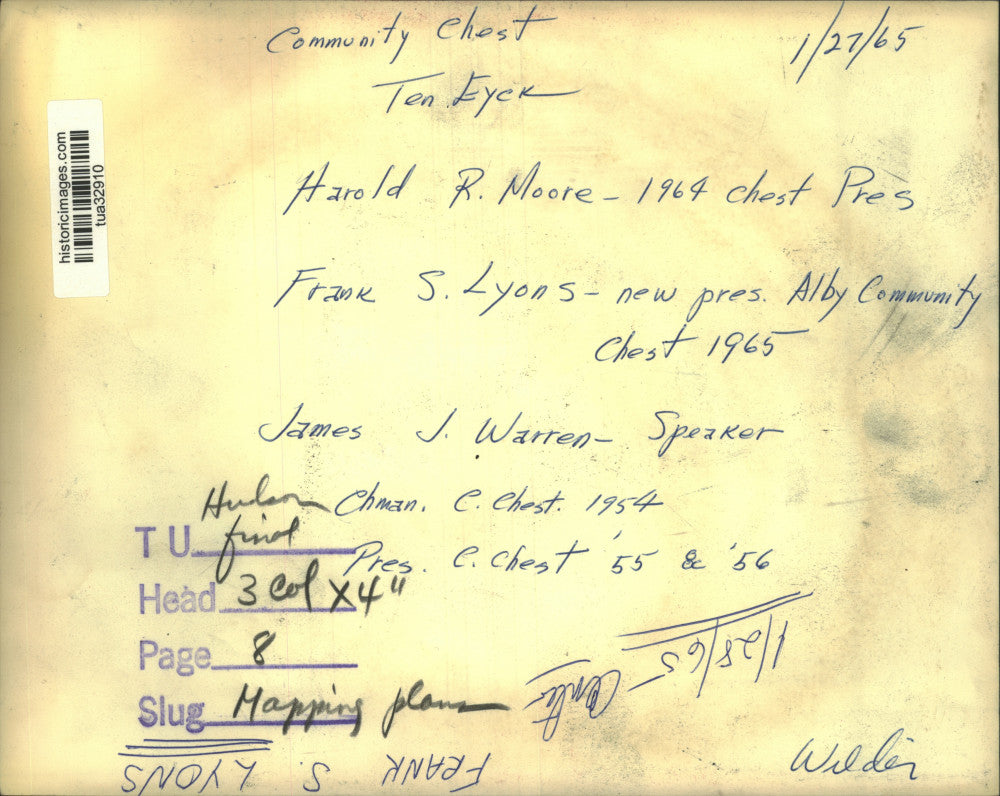 Community Chest 1/27/65
Ten Eyck
historicimages.com
tua32910
Harold R. Moore - 1964 chest Pres
Frank S. Lyons - new pres. Alby Community
Chest 1965
James J. Warren - Speaker
Chman. C. Chest. 1954
Pres. C. Chest '55 & '56
Hudson
TU final
Head 3 col X 4"
Page 8
Slug Mapping plans
1/28/65
FRANK S. LYONS
Wilder